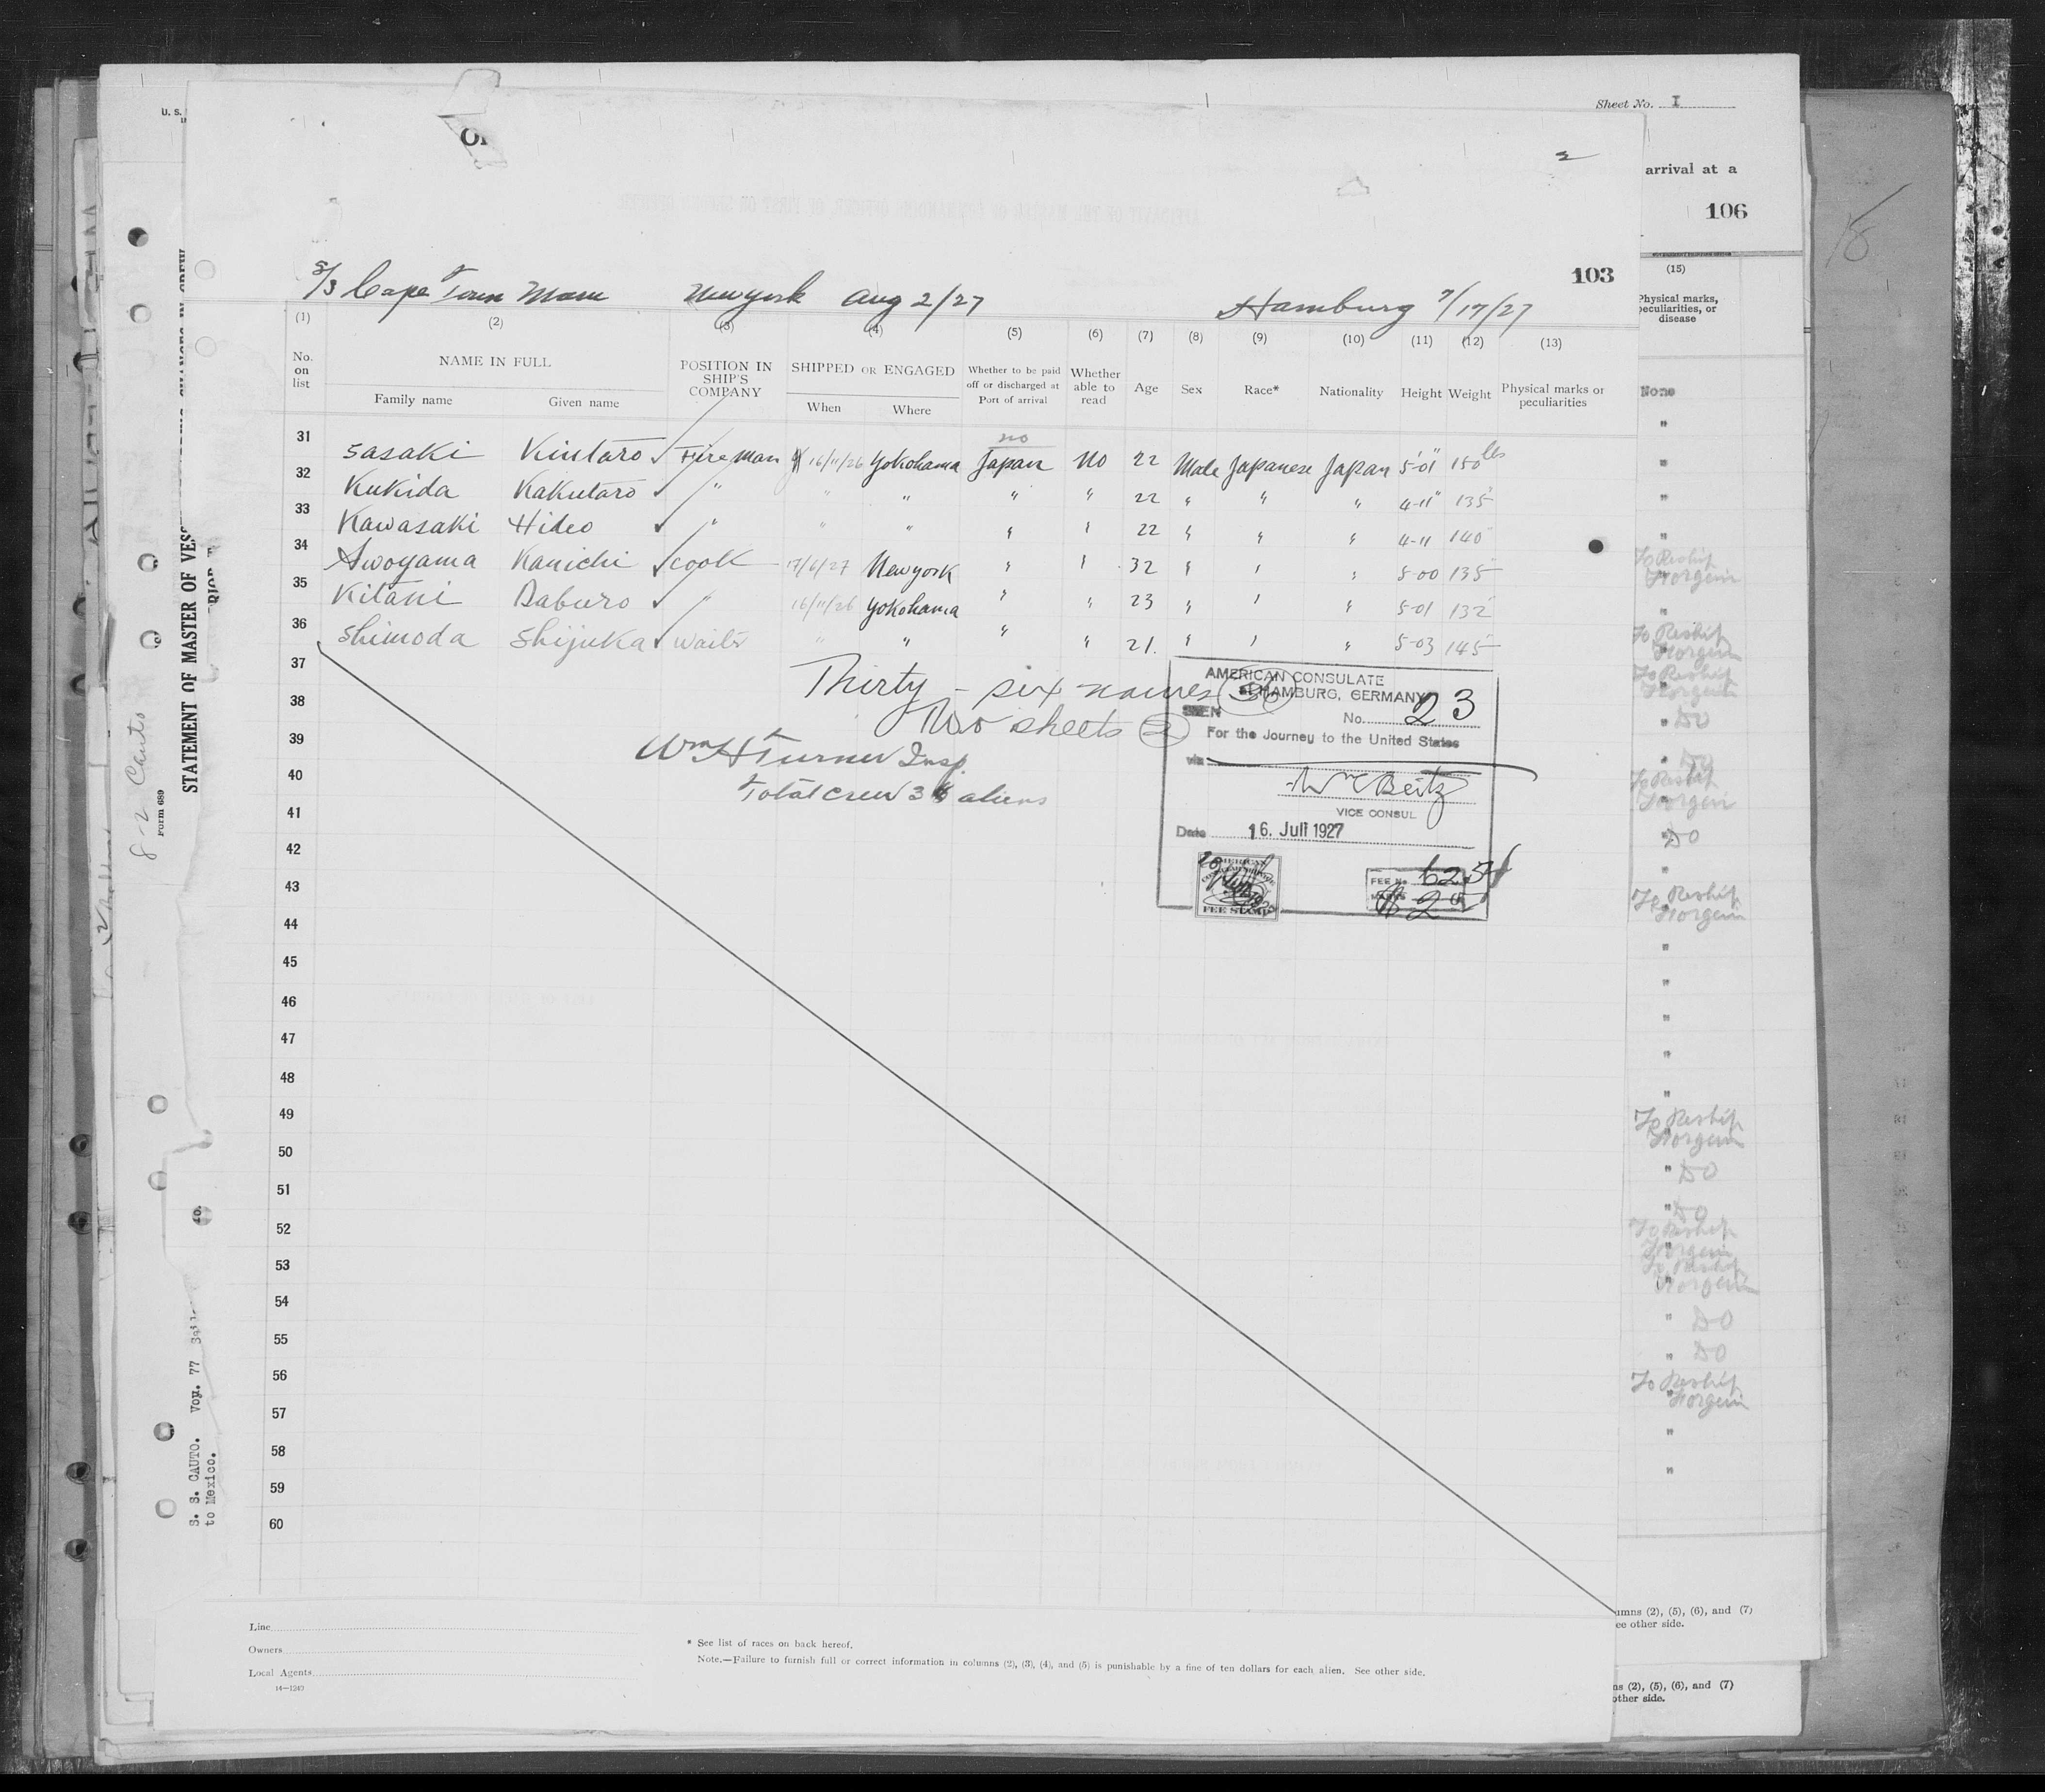 U. S.
Sheet No. I
arrival at a
106
2
103
S/S Cape Town Maru New York Aug 2/27 Hamburg 7/17/27
(1) (2) (3) (4) (5) (6) (7) (8) (9) (10) (11) (12) (13)
No. on list NAME IN FULL POSITION IN SHIP'S COMPANY SHIPPED OR ENGAGED Whether to be paid off or discharged at Port of arrival Whether able to read Age Sex Race* Nationality Height Weight Physical marks or peculiarities
Family name Given name When Where
no
31 Sasaki Kintaro Fireman 16/11/26 Yokohama Japan No 22 Male Japanese Japan 5'01" 150 lbs
32 Kukida Kakutaro " " " " " 22 " " " 4-11" 135
33 Kawasaki Hideo " " " " " 22 " " " 4-11 140
34 Awoyama Kanichi cook 17/6/27 New york " " 32 " " " 5-00 135
35 Kitani Daburo " 16/11/26 Yokohama " " 23 " " " 5-01 132
36 Shimoda Shijuka waiter " " " " 21. " " " 5-03 145
37
38
39
40
41
42
43
44
45
46
47
48
49
50
51
52
53
54
55
56
57
58
59
60
Thirty - six names 36
Two sheets 2
Wm H Turner Insp.
Total crew 36 aliens
AMERICAN CONSULATE
at HAMBURG, GERMANY
SEEN No. 23
For the Journey to the United States
via
VICE CONSUL
Date 16. Juli 1927
AMERICAN
FEE STAMP
FEE No. 6254
Line
Owners
Local Agents
14—1240
* See list of races on back hereof.
Note.—Failure to furnish full or correct information in columns (2), (3), (4), and (5) is punishable by a fine of ten dollars for each alien. See other side.
(15)
Physical marks, peculiarities, or disease
None
To Reship Foreign
To Reship Foreign
To Reship Foreign
" DO
" DO
To Reship Foreign
" DO
To Reship Foreign
To Reship Foreign
" DO
" DO
To Reship Foreign
To Reship Foreign
" DO
" DO
To Reship Foreign
umns (2), (5), (6), and (7)
ee other side.
ns (2), (5), (6), and (7)
other side.
18
8-2 Cauto
Form 689
STATEMENT OF MASTER OF VES
S. S. CAUTO. Voy. 77
to Mexico.